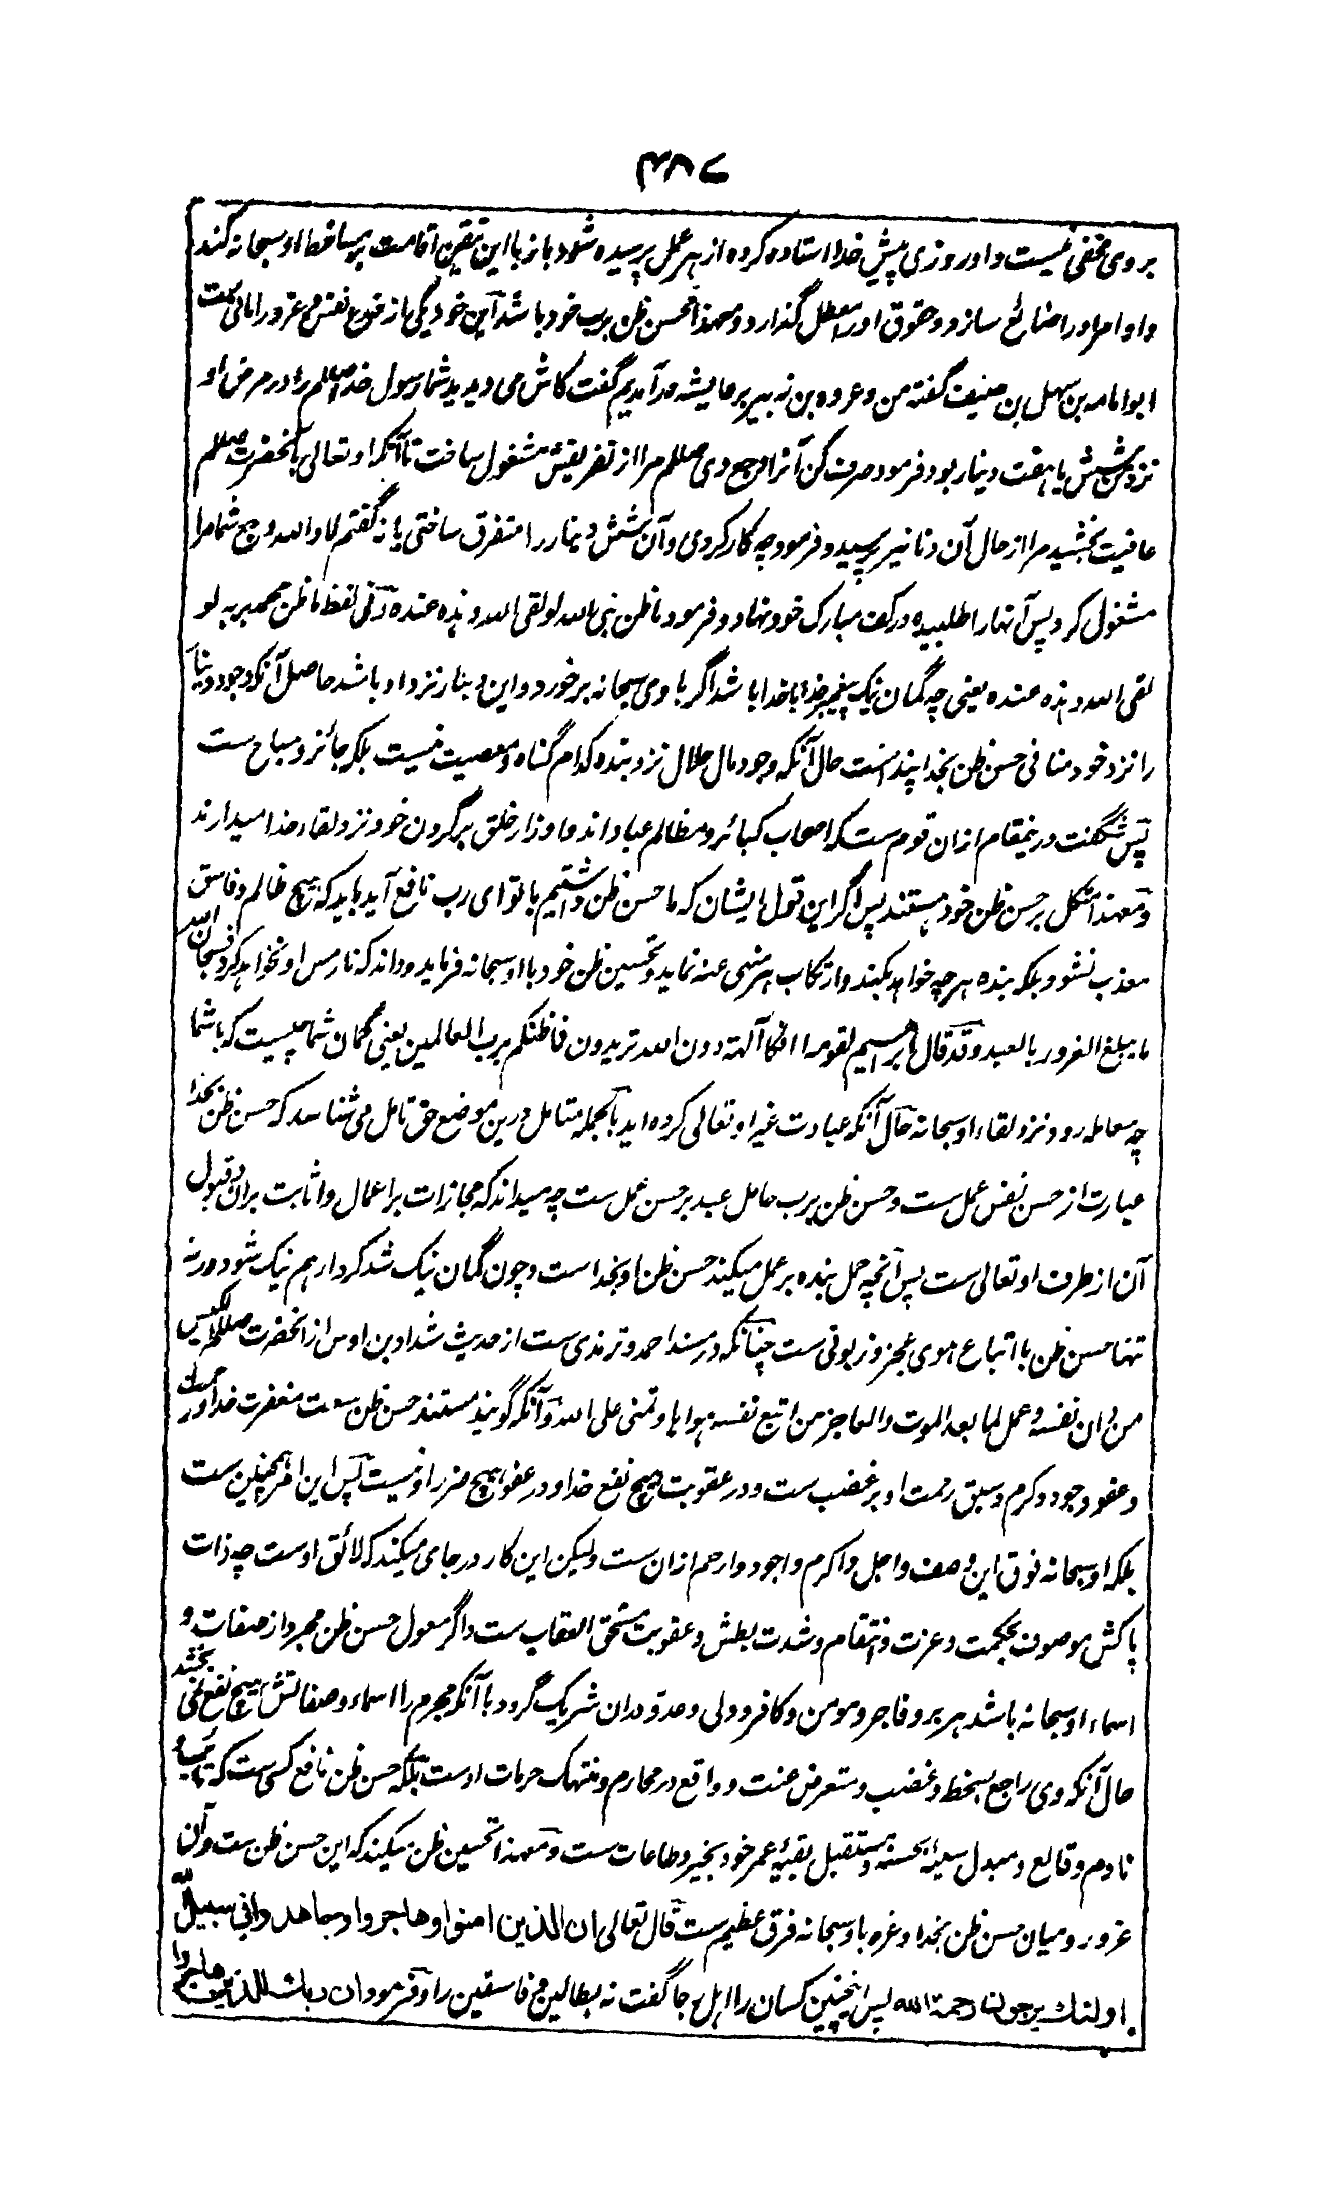 بروی مخفی نیست و او روزی پیش خدا استاده کرده از هر عمل پرسیده شود باز با این تیقن اقامت بر مساخط او سبحانه کند
و اوامر او را ضائع سازد و حقوق او را معطل گذارد و معهذا محسن ظن برب خود باشد این خود یکی از خدع نفس و غرور امانی ست
ابو امامه بن سهل بن حنیف گفته من و عروه بن زبیر بر عایشه درآمدیم گفت کاش می دیدید شما رسول خدا صللم را در مرض او
نزد من شش یا هفت دینار بود فرمود صرف کن آنرا وجع وی صللم مرا از تفریقش مشغول ساخت تا آنکه او تعالی بآنحضرت صللم
عافیت بخشید مرا از حال آن دنانیر پرسید و فرمود چه کار کردی و آن شش دینار را متفرق ساختی یا نه گفتم لا والله وجع شما مرا
مشغول کرد پس آنها را طلبیده در کف مبارک خود نهاد و فرمود ما ظن نبی الله لو لقی الله و هذه عنده و فی لفظ ما ظن محمد بربه لو
لقی الله و هذه عنده یعنی چه گمان نیک پیغمبر خدا با خدا باشد اگر با وی سبحانه برخورد و این دینار نزد او باشد حاصل آنکه وجود دنیا
را نزد خود منافی حسن ظن بخدا پنداشت حال آنکه وجود مال حلال نزد بنده کدام گناه و معصیت نیست بلکه جائز و مباح ست
پس شگفت درینمقام ازان قوم ست که اصحاب کبائر و مظالم عباد اند و اوزار خلق بر گردن خود نزد لقاء خدا میدارند
و معهذا متکل بر حسن ظن خود هستند پس اگر این قول ایشان که ما حسن ظن داشتیم با تو ای رب نافع آید باید که هیچ ظالم و فاسق
معذب نشود بلکه بنده هر چه خواهد بکند و ارتکاب هر منهی عنه نماید و تحسین ظن خود با او سبحانه فرماید و داند که نار مس او نخواهد کرد فسبحان الله
ما یبلغ الغرور بالعبد و قد قال ابراهیم لقومه ائفکا آلهة دون الله تریدون فما ظنکم برب العالمین یعنی گمان شما چیست که با شما
چه معامله رود نزد لقاء او سبحانه حال آنکه عبادت غیر او تعالی کرده اید بالجمله متامل درین موضع حق تامل می شناسد که حسن ظن بخدا
عبارت از حسن نفس عمل ست و حسن ظن برب حامل عبد بر حسن عمل ست چه میداند که مجازات بر اعمال و اثابت بران و قبول
آن از طرف او تعالی ست پس آنچه حمل بنده بر عمل میکند حسن ظن او بخداست و چون گمان نیک شد کردار هم نیک شود ورنه
تنها حسن ظن با اتباع هوی عجز و زبونی ست چنانکه در مسند احمد و ترمذی ست از حدیث شداد بن اوس از آنحضرت صللم الکیس
من دان نفسه و عمل لما بعد الموت والعاجز من اتبع نفسه هواها و تمنی علی الله و آنکه گویند مستند حسن ظن سعت مغفرت خدا و رحمت
و عفو و جود و کرم و سبق رحمت او بر غضب ست و در عقوبت هیچ نفع خدا و در عفو هیچ ضرر او نیست پس این امر همچنین ست
بلکه او سبحانه فوق این وصف و اجل و اکرم و اجود و ارحم ازان ست ولیکن این کار در جای میکند که لائق اوست چه ذات
پاکش موصوف بحکمت و عزت و انتقام و شدت بطش و عقوبت مستحق العقاب ست و اگر معول حسن ظن مجرد از صفات و
اسماء او سبحانه باشد هر بر و فاجر و مومن و کافر و ولی و عدو دران شریک گردد با آنکه مجرم را اسماء و صفاتش هیچ نفع نمی بخشد
حال آنکه وی راجع بسخط و غضب و متعرض لعنت و واقع در محارم و منتهک حرمات اوست بلکه حسن ظن نافع کسی ست که تائب و
نادم و قالع و مبدل سیئه بحسنه و مستقبل بقیه عمر خود بخیر و طاعات ست و معهذا تحسین ظن میکند که این حسن ظن ست و آن
غرور و میان حسن ظن بخدا و غره باو سبحانه فرق عظیم ست قال تعالی ان الذین امنوا و هاجروا و جاهدوا فی سبیل الله
اولئك یرجون رحمة الله پس اینچنین کسان را اهل رجا گفت نه بطالین و فاسقین را و فرمود ان ربك للذین هاجروا